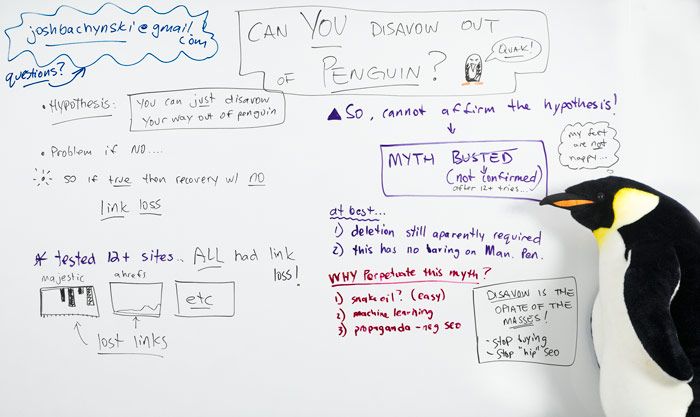 joshbachynski@gmail.
com
questions?
CAN YOU DISAVOW OUT
OF PENGUIN?
QUAK!
• Hypothesis:
You can just disavow
your way out of penguin
• Problem if NO....
so if true then recovery w/ no
link loss
* tested 12+ sites.. ALL had link
loss!
majestic
ahrefs
etc
lost links
▲ So, cannot affirm the hypothesis!
MYTH BUSTED
(not confirmed)
after 12+ tries...
my feet
are not
happy...
at best...
1) deletion still aparently required
2) this has no baring on Man. Pen.
WHY Perpetuate this myth?
1) snake oil? (easy)
2) machine learning
3) propaganda - neg SEO
DISAVOW IS THE
OPIATE OF THE
MASSES!
- stop buying
- stop "hip" SEO